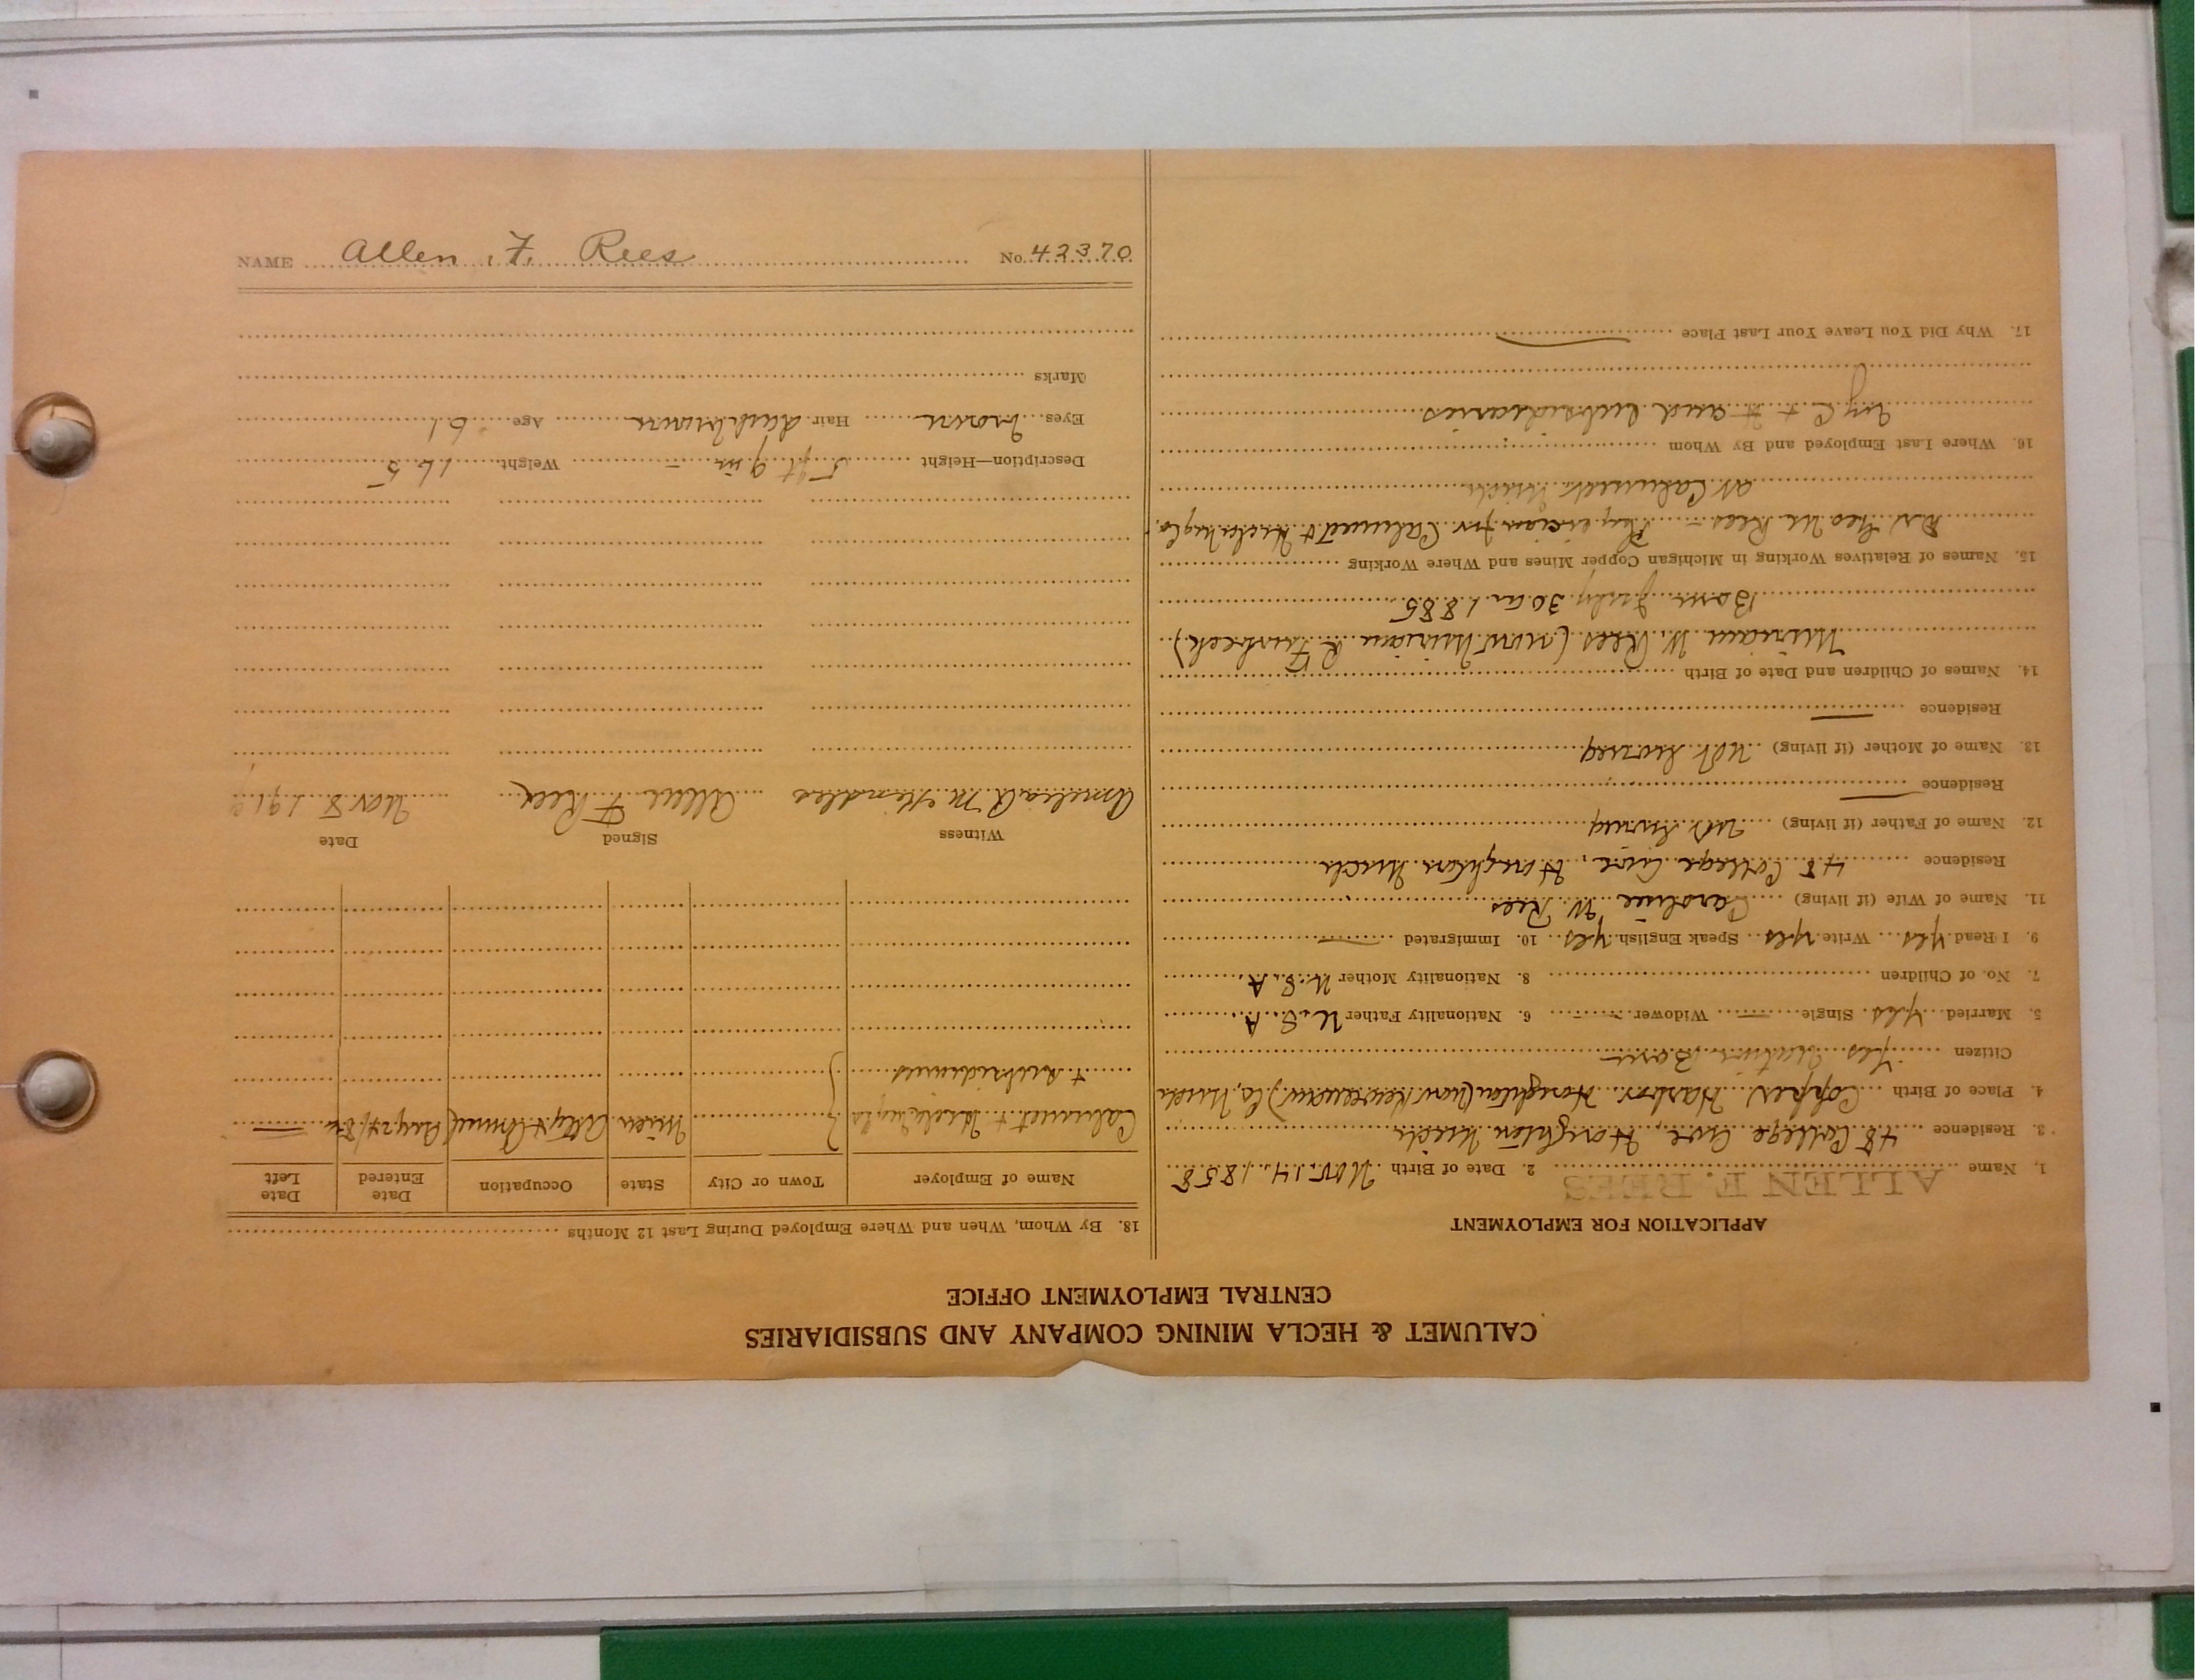 CALUMET & HECLA MINING COMPANY AND SUBSIDIARIES
CENTRAL EMPLOYMENT OFFICE
APPLICATION FOR EMPLOYMENT
1. Name ALLEN F. REES 2. Date of Birth Nov. 14. 1858
3. Residence 48 College Ave, Houghton Mich
4. Place of Birth Copper Harbor Houghton (now Keweenaw) Co, Mich
Citizen Yes Native Born
5. Married Yes Single — Widower — 6. Nationality Father U. S. A.
7. No. of Children 8. Nationality Mother U. S. A
9. I Read Yes Write Yes Speak English Yes 10. Immigrated —
11. Name of Wife (if living) Caroline W Rees
Residence 48 College Ave, Houghton Mich
12. Name of Father (if living) Not living
Residence —
13. Name of Mother (if living) Not living
Residence —
14. Names of Children and Date of Birth
Miriam W. Rees (now Miriam R
Born July 30 1885
15. Names of Relatives Working in Michigan Copper Mines and Where Working
Dr Geo M Rees — Physician for Calumet & Hecla Mg Co.
at Calumet Mich
16. Where Last Employed and By Whom
By C + H and subsidiaries
17. Why Did You Leave Your Last Place —
18. By Whom, When and Where Employed During Last 12 Months
Name of Employer Town or City State Occupation Date Entered Date Left
Calumet + Hecla Mg Co Atty & Counsel Aug 24/8 —
+ subsidiaries
Witness Signed Date
Amelia A. M. Allen F Rees Nov 8 191
Description—Height 5 ft 9 in — Weight 165
Eyes brown Hair dark brown Age 61
Marks
NAME Allen F. Rees No. 42370